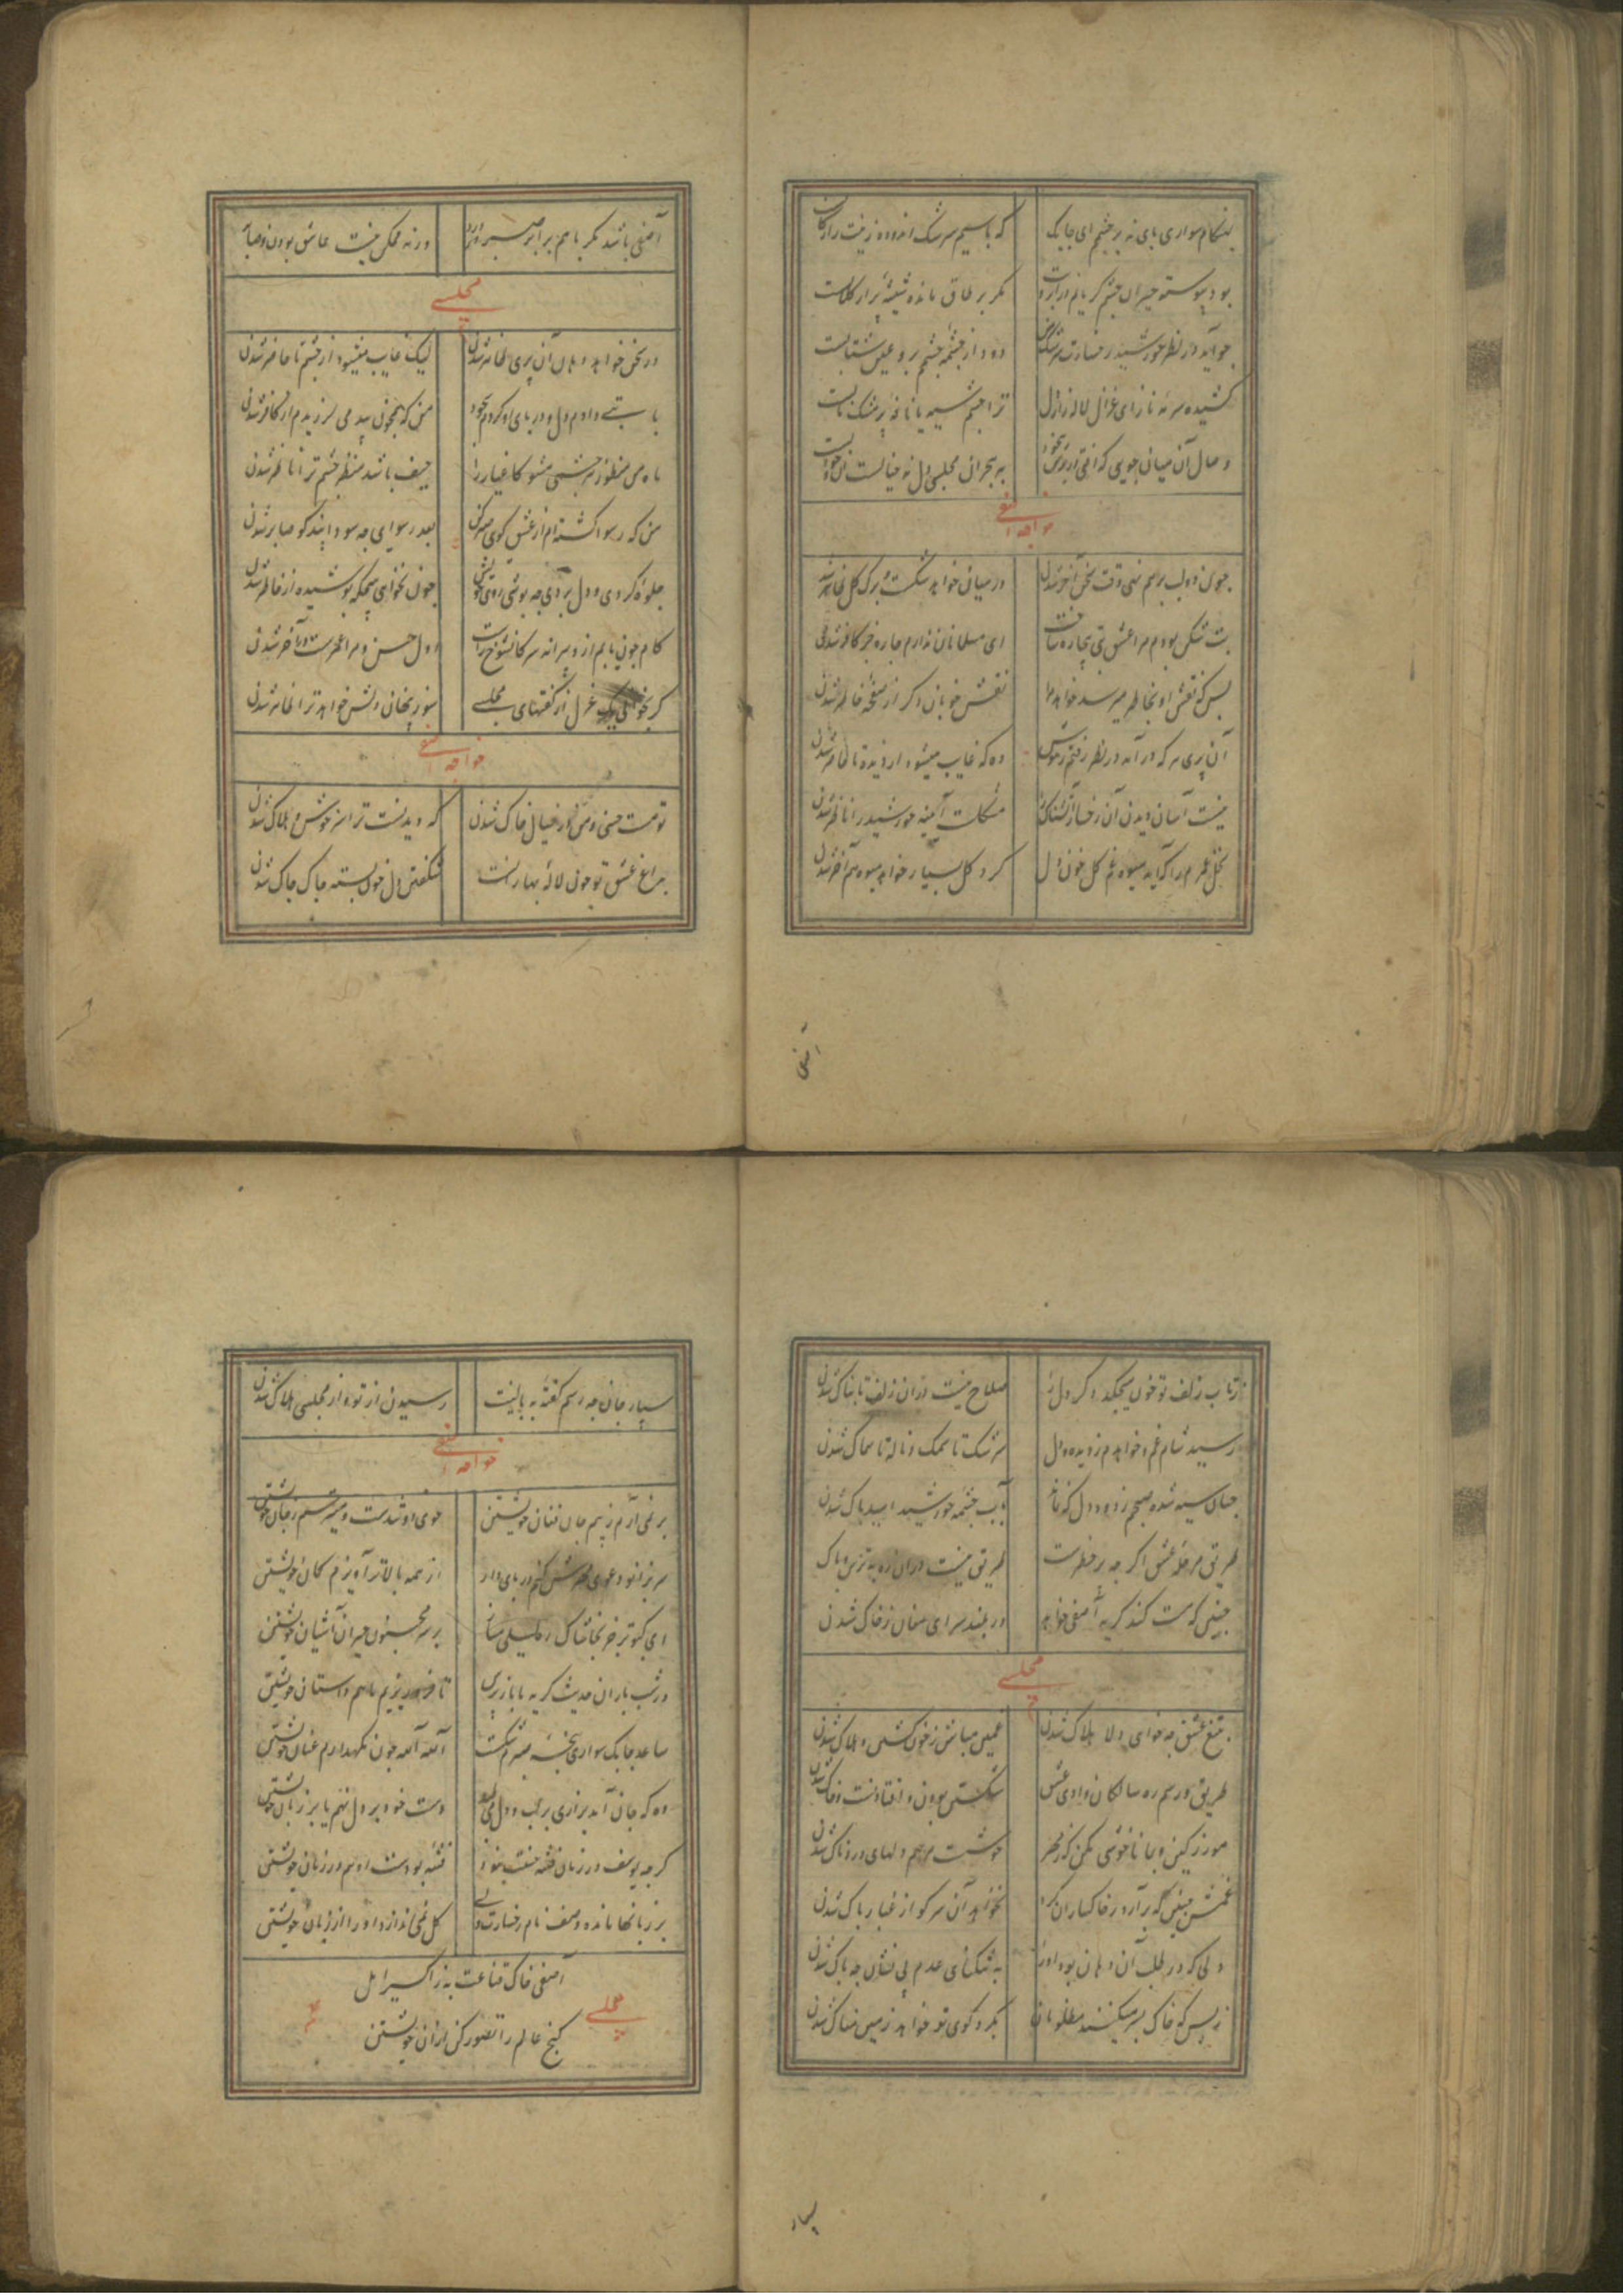 بهنگام سواری پای نه بر چشم ای چابک که با سیم سرشک اندوده زینت را رکابست
بود پیوسته حیران چشم گریانم در ابرویت مگر بر طاق مانده شیشه پر از گلابست
چو آید در نظر خورشید رخسارت ده از چشمه چشمم بر و عین شتابست
کشیده سرمه ناز ای غزال لاله زار دل ترا چشم سیه یا نافه پر مشک نابست
وصال آن میان جویی که افتی به هجران مجلسی دل نه خیالست
خواجه آصفی
چون دو لب بر هم نهی وقت سخن آخر شدن در میان خواهد شکست برگ گل ظاهر شدن
بت شکن بودم مرا عشق بتی بیچاره ساخت ای مسلمانان ندارم چاره جز کافر شدن
بس که نقش او بخاطر میرسد خواهد مرا نقش خوبان دگر از صفحه خاطر شدن
آن پری هر که در آمد در نظر رفتم ز هوش وه که غایب میشود از دیده تا ظاهر شدن
نیست آسان دیدن آن رخسار آتشناک مشکلست آیینه خورشید را ناظر شدن
نخل عمرم را که آید میوه غم گل خون دل گرد گل بسیار خواهد میوه هم آخر شدن
آصفی
آصفی باشد مگر با هم برابر صبر او ورنه ممکن نیست عاشق بودن و صابر
مجلسی
در سخن خواهد دهان آن پری ظاهر شدن لیک غایب میشود از چشم تا حاضر شدن
با بتی دادم دل و در پای او کردم سجود من که همچون بید می لرزیدم از کافر شدن
ماه من منظور هر چشمی مشو کاغیار را حیف باشد منظر چشم ترا ناظر شدن
من که رسوا گشته ام از عشق گوی صبر کن بعد رسوایی چه سود ایندگو صابر شدن
جلوه کردی و دل بردی چه پوشی روی خویش چون نخواهی هیچگه پوشیده از خاطر شدن
کام چون یابم ازو پیرانه سر کان شوخ را اول حسن و مرا عمرست آخر شدن
گر بخوانی یک غزل از گفتهای مجلسی سوز پنهان دلش خواهد ترا ظاهر شدن
خواجه آصفی
تو مست حسنی و من در خیال خاک شدن که دیدنست ترا سرخوش و هلاک شدن
بداغ عشق تو چون لاله بهارنست شگفتن دل خون بسته چاک چاک شدن
ز تاب زلف تو خون میچکد دگر دل را صلاح نیست در آن زلف تابناک شدن
رسید شام غم و خواهم ز دیده و دل سرشک تا سمک و ناله تا سماک شدن
چنان سیه شده صبحم ز دود دل که نماند بآب چشمه خورشید امید پاک شدن
طریق مرحله عشق اگر چه پر خطرست طریق نیست در آن ره به ترس و باک
چنین که مست کند گریه آصفی خواهد در بلند سرای مغان ز خاک شدن
مجلسی
بتیغ عشق چه خواهی دلا هلاک شدن غمین مباش ز خون گشتن و هلاک شدن
طریق و رسم ره سالکان وادی عشق شکستن بودن و افتادنست و خاک شدن
مورز کین و بما ناخوشی مکن که ز مهر خوشست مرهم دلهای دردناک شدن
غمش مبین که برآرد ز خاکساران گرد نخواهد آن سر کو از غبار پاک شدن
دلی که در طلب آن دهان بود او را به تنگنای عدم بی نشان چه باک شدن
ز بس که خاک بسر میکنند مظلومان بگرد کوی تو خواهد زمین مغاک شدن
سپار
سپار جان چه رسم گفته به بالینت رسیدن از تو و از مجلسی هلاک شدن
خواجه آصفی
بر نمی آرم ز بیم جان فغان خویشتن خوی او تندست و میترسم ز جان خویشتن
سر بزانو دعوی در پای دار از همه بالاتر آویزم کمان خویشتن
ای کبوتر جز بخاشاک ره لیلی مساز بر سر مجنون حیران آشیان خویشتن
در شب باران حدیث گریه با ما تا فرو ریزیم با هم داستان خویشتن
ساعد چابک سواری پنجه صبرم شکست آه آه چون نگهدارم عنان خویشتن
وه که جان آمد بزاری بر لب و دل دست خود بر دل نهم یا بر زبان خویشتن
گرچه یوسف در زمان فتنه فتنه بودست او هم در زمان خویشتن
بر زبانها مانده وصف نام رخسارت ولی گل نمی اندازد او را از زبان خویشتن
آصفی خاک قناعت به ز اکسیر امل
گنج عالم را تصور کن از آن خویشتن
مجلسی